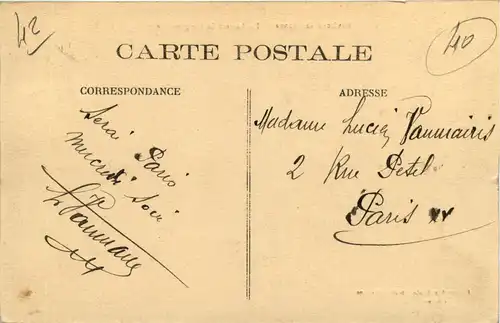 42
40
CARTE POSTALE
CORRESPONDANCE
ADRESSE
Serai Paris
mercredi Soir
Madame Lucien
2 Rue Petel
Paris xv